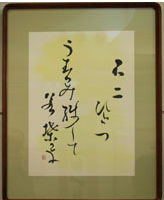 不二
ひとつ
うづみ残して
若葉哉